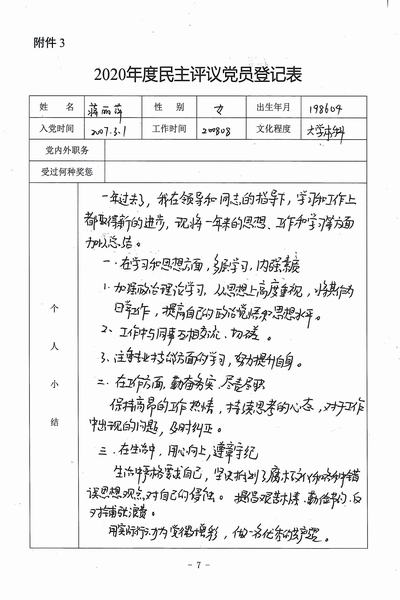 附件 3
2020年度民主评议党员登记表
姓 名 蒋丽萍 性 别 女 出生年月 198604
入党时间 2007.3.1 工作时间 200808 文化程度 大学本科
党内外职务
受过何种奖惩
个人小结
一年过去了，我在领导和同志的指导下，学习和工作上
都取得新的进步，现将一年来的思想、工作和学习等方面
加以总结。
一.在学习和思想方面，多层学习，内强素质
1.加强政治理论学习，从思想上高度重视，将其作为
日常工作，提高自己的政治觉悟和思想水平。
2、工作中与同事互相交流、切磋。
3、注重专业技能方面的学习，努力提升自身。
二.在工作方面，勤奋务实，尽责尽职
保持高昂的工作热情，持续思考的心态，对于工作
中出现的问题，及时纠正。
三.在生活中，用心向上，遵章守纪
生活中严格要求自己，坚决抵制了腐朽文化和各种错
误思想观点对自己的侵蚀。提倡艰苦朴素、勤俭节约，反
对铺张浪费。
用实际行动为党徽增彩，做一名优秀的共产党员。
- 7 -